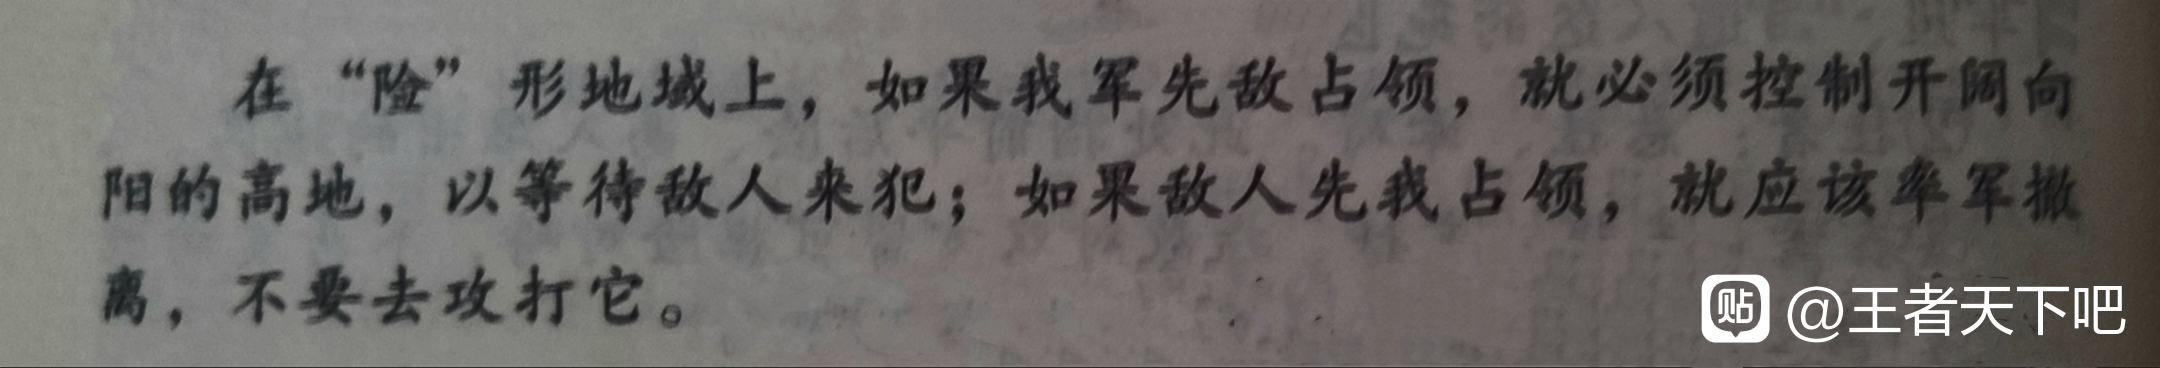 在“险”形地域上，如果我军先敌占领，就必须控制开阔向
阳的高地，以等待敌人来犯；如果敌人先我占领，就应该率军撤
离，不要去攻打它。
贴 @王者天下吧